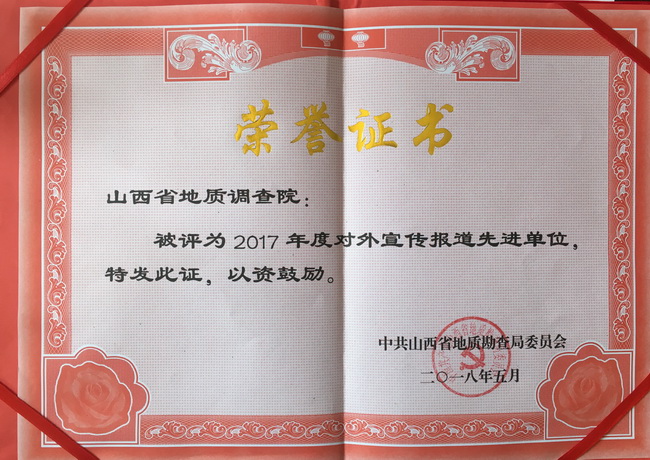 荣誉证书
山西省地质调查院：
被评为2017年度对外宣传报道先进单位，
特发此证，以资鼓励。
中共山西省地质勘查局委员会
二〇一八年五月